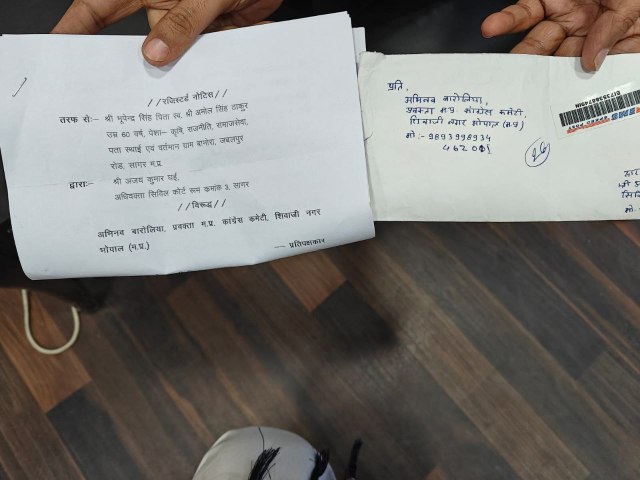 //रजिस्टर्ड नोटिस//
तरफ से:- श्री भूपेन्द्र सिंह पिता स्व. श्री अमोल सिंह ठाकुर
उम्र 60 वर्ष, पेशा- कृषि, राजनीति, समाजसेवा,
पता स्थाई एवं वर्तमान ग्राम बामोरा, जबलपुर
रोड, सागर म.प्र.
द्वारा:- श्री अजय कुमार घई,
अधिवक्ता सिविल कोर्ट रूम कमांक 3, सागर
//विरूद्ध//
अभिनव बारोलिया, प्रवक्ता म.प्र. कांग्रेस कमेटी, शिवाजी नगर
भोपाल (म.प्र.)
— प्रतिपक्षकार
प्रति,
अभिनव बारोलिया,
प्रवक्ता म.प्र. कांग्रेस कमेटी,
शिवाजी नगर भोपाल (म.प्र)
मो:- 9893998934
462001
26